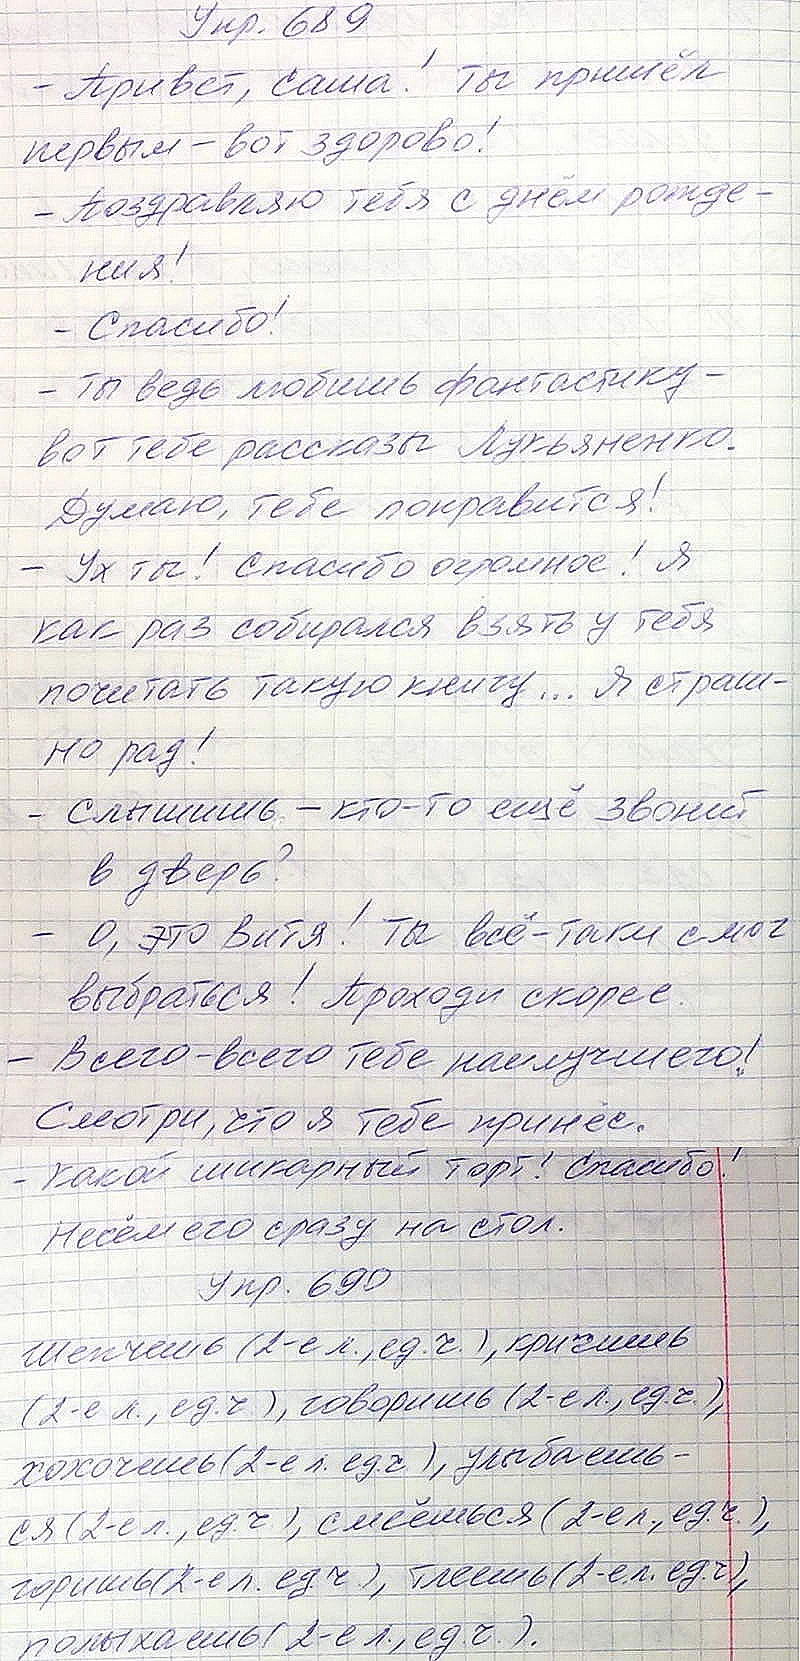 Упр. 689
- Привет, Саша! Ты пришёл
первым - вот здорово!
- Поздравляю тебя с днём рожде-
ния!
- Спасибо!
- Ты ведь любишь фантастику -
вот тебе рассказы Лукьяненко.
Думаю, тебе понравится!
- Ух ты! Спасибо огромное! Я
как раз собирался взять у тебя
почитать такую книгу... Я страш-
но рад!
- Слышишь - кто-то ещё звонит
в дверь?
- О, это Витя! Ты всё-таки смог
выбраться! Проходи скорее.
- Всего-всего тебе наилучшего!
Смотри, что я тебе принёс.
- Какой шикарный торт! Спасибо!
Несём его сразу на стол.
Упр. 690
Шепчешь (2-е л., ед.ч.), кричишь
(2-е л., ед.ч.), говоришь (2-е л., ед.ч.),
хохочешь (2-е л. ед.ч.), улыбаешь-
ся (2-е л., ед.ч.), смеёшься (2-е л., ед.ч.),
горишь (2-е л. ед.ч.), тлеешь (2-е л. ед.ч),
полыхаешь (2-е л., ед.ч.).